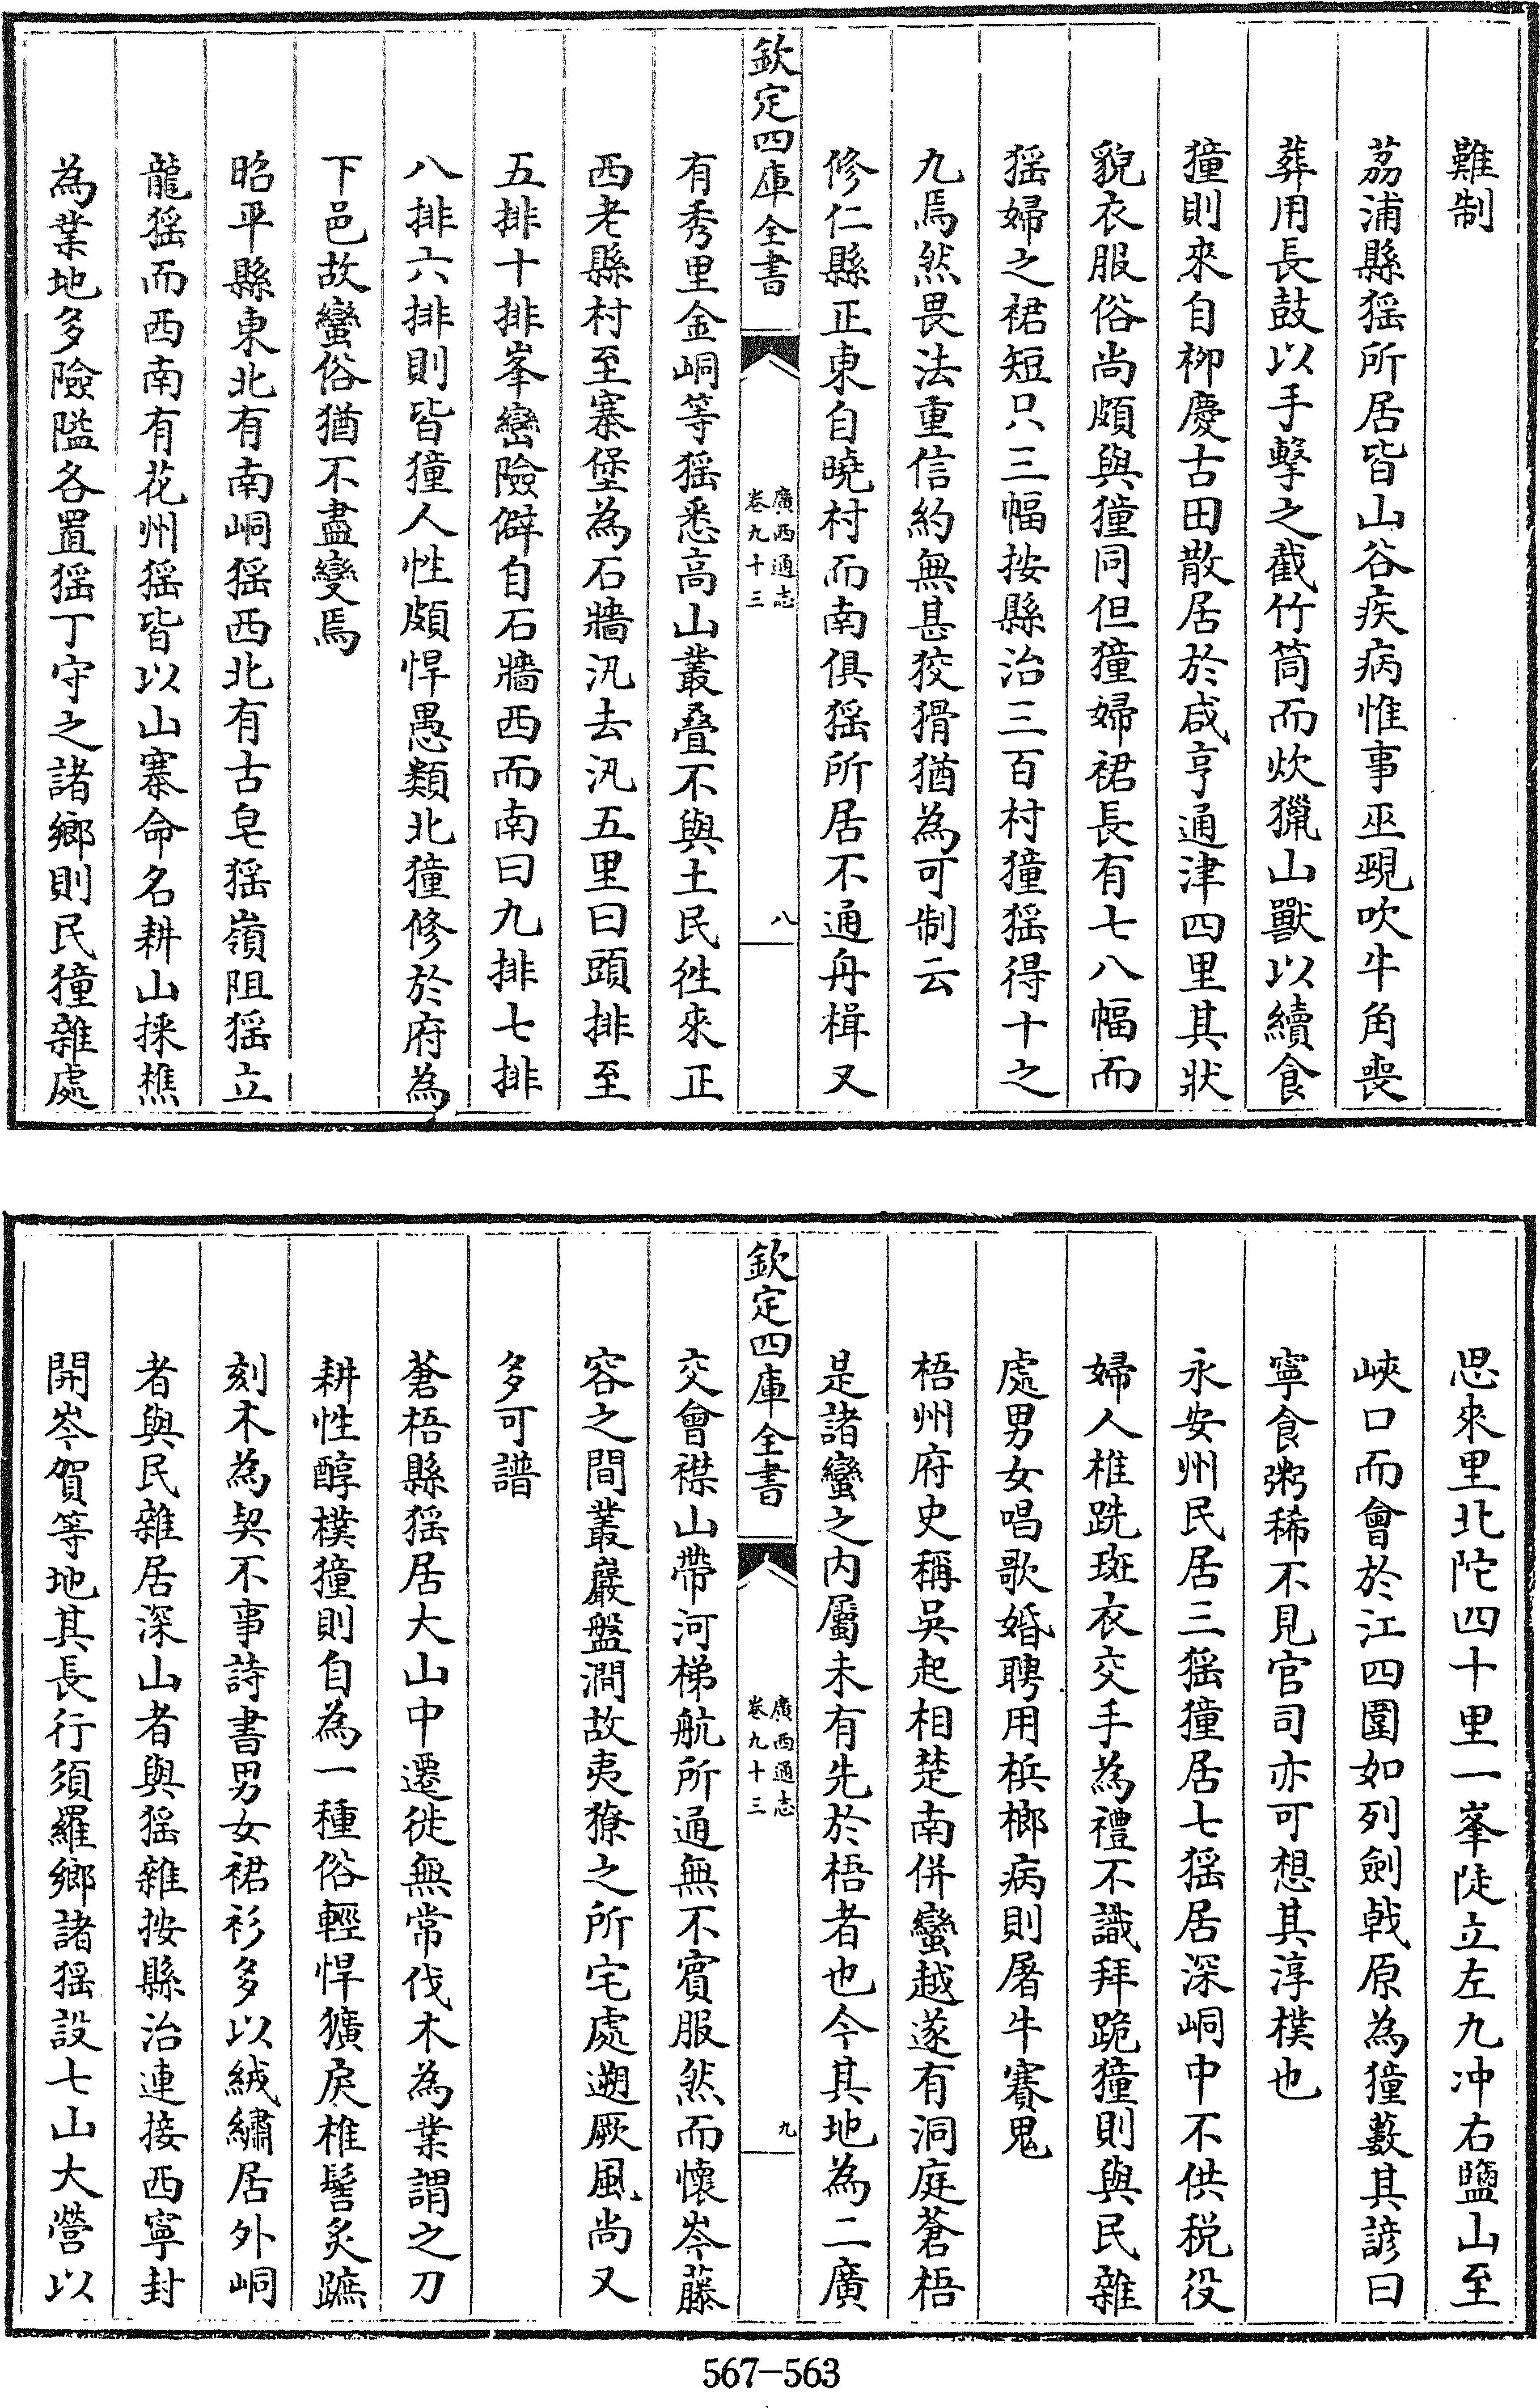 難制
茘浦縣猺所居皆山谷疾病惟事巫覡吹牛角喪
葬用長鼓以手擊之截竹筒而炊獵山獸以續食
獞則來自柳慶古田散居於咸亨通津四里其狀
貌衣服俗尚頗與獞同但獞婦裙長有七八幅而
猺婦之裙短只三幅按縣治三百村獞猺得十之
九焉然畏法重信約無甚狡猾猶為可制云
修仁縣正東自曉村而南俱猺所居不通舟楫又
欽定四庫全書
廣西通志
卷九十三
八
有秀里金峒等猺悉高山叢叠不與土民徃來正
西老縣村至寨堡為石牆汛去汛五里曰頭排至
五排十排峯巒險僻自石牆西而南曰九排七排
八排六排則皆獞人性頗悍愚類北獞修於府為
下邑故蠻俗猶不盡變焉
昭平縣東北有南峒猺西北有古皂猺嶺阻猺立
龍猺而西南有花州猺皆以山寨命名耕山採樵
為業地多險隘各置猺丁守之諸鄉則民獞雜處
思來里北陀四十里一峯陡立左九冲右鹽山至
峽口而會於江四圍如列劍戟原為獞藪其諺曰
寧食粥稀不見官司亦可想其淳樸也
永安州民居三猺獞居七猺居深峒中不供税役
婦人椎跣斑衣交手為禮不識拜跪獞則與民雜
處男女唱歌婚聘用梹榔病則屠牛賽鬼
梧州府史稱吳起相楚南併蠻越遂有洞庭蒼梧
是諸蠻之内屬未有先於梧者也今其地為二廣
欽定四庫全書
廣西通志
卷九十三
九
交會襟山帶河梯航所通無不賓服然而懷岑藤
容之間叢巖盤澗故夷獠之所宅處遡厥風尚又
多可譜
蒼梧縣猺居大山中遷徙無常伐木為業謂之刀
耕性醇樸獞則自為一種俗輕悍獷戾椎髻炙蹠
刻木為契不事詩書男女裙衫多以絨繡居外峒
者與民雜居深山者與猺雜按縣治連接西寧封
開岑賀等地其長行須羅鄉諸猺設七山大營以
567-563